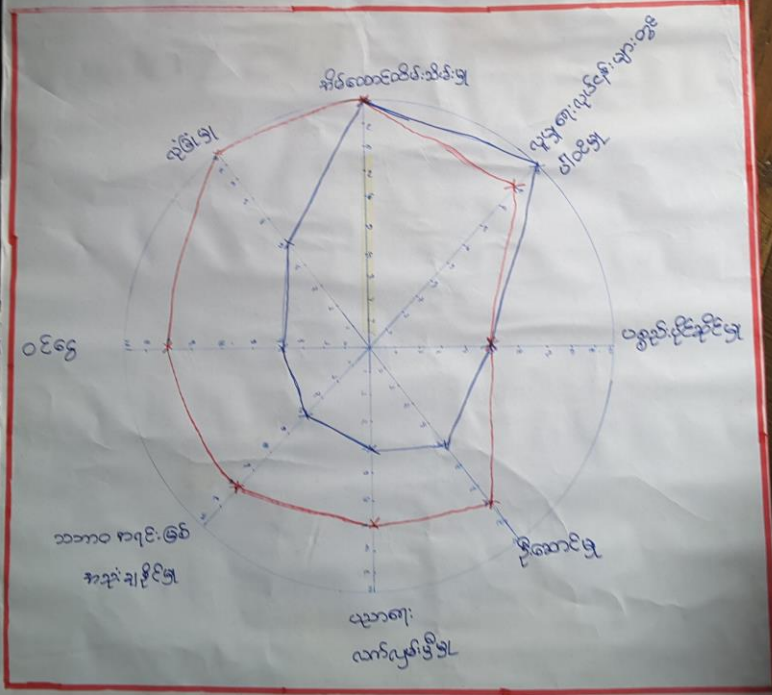 အိမ်ထောင်ထိမ်းသိမ်းမှု
လူမှုရေးလုပ်ငန်းများတွင်
ပါဝင်မှု
ပစ္စည်းပိုင်ဆိုင်မှု
ဦးဆောင်မှု
ပညာရေး
လက်လှမ်းမှီမှု
သဘာဝ အရင်းမြစ်
အသုံးချနိုင်မှု
ဝင်ငွေ
လုံခြုံမှု